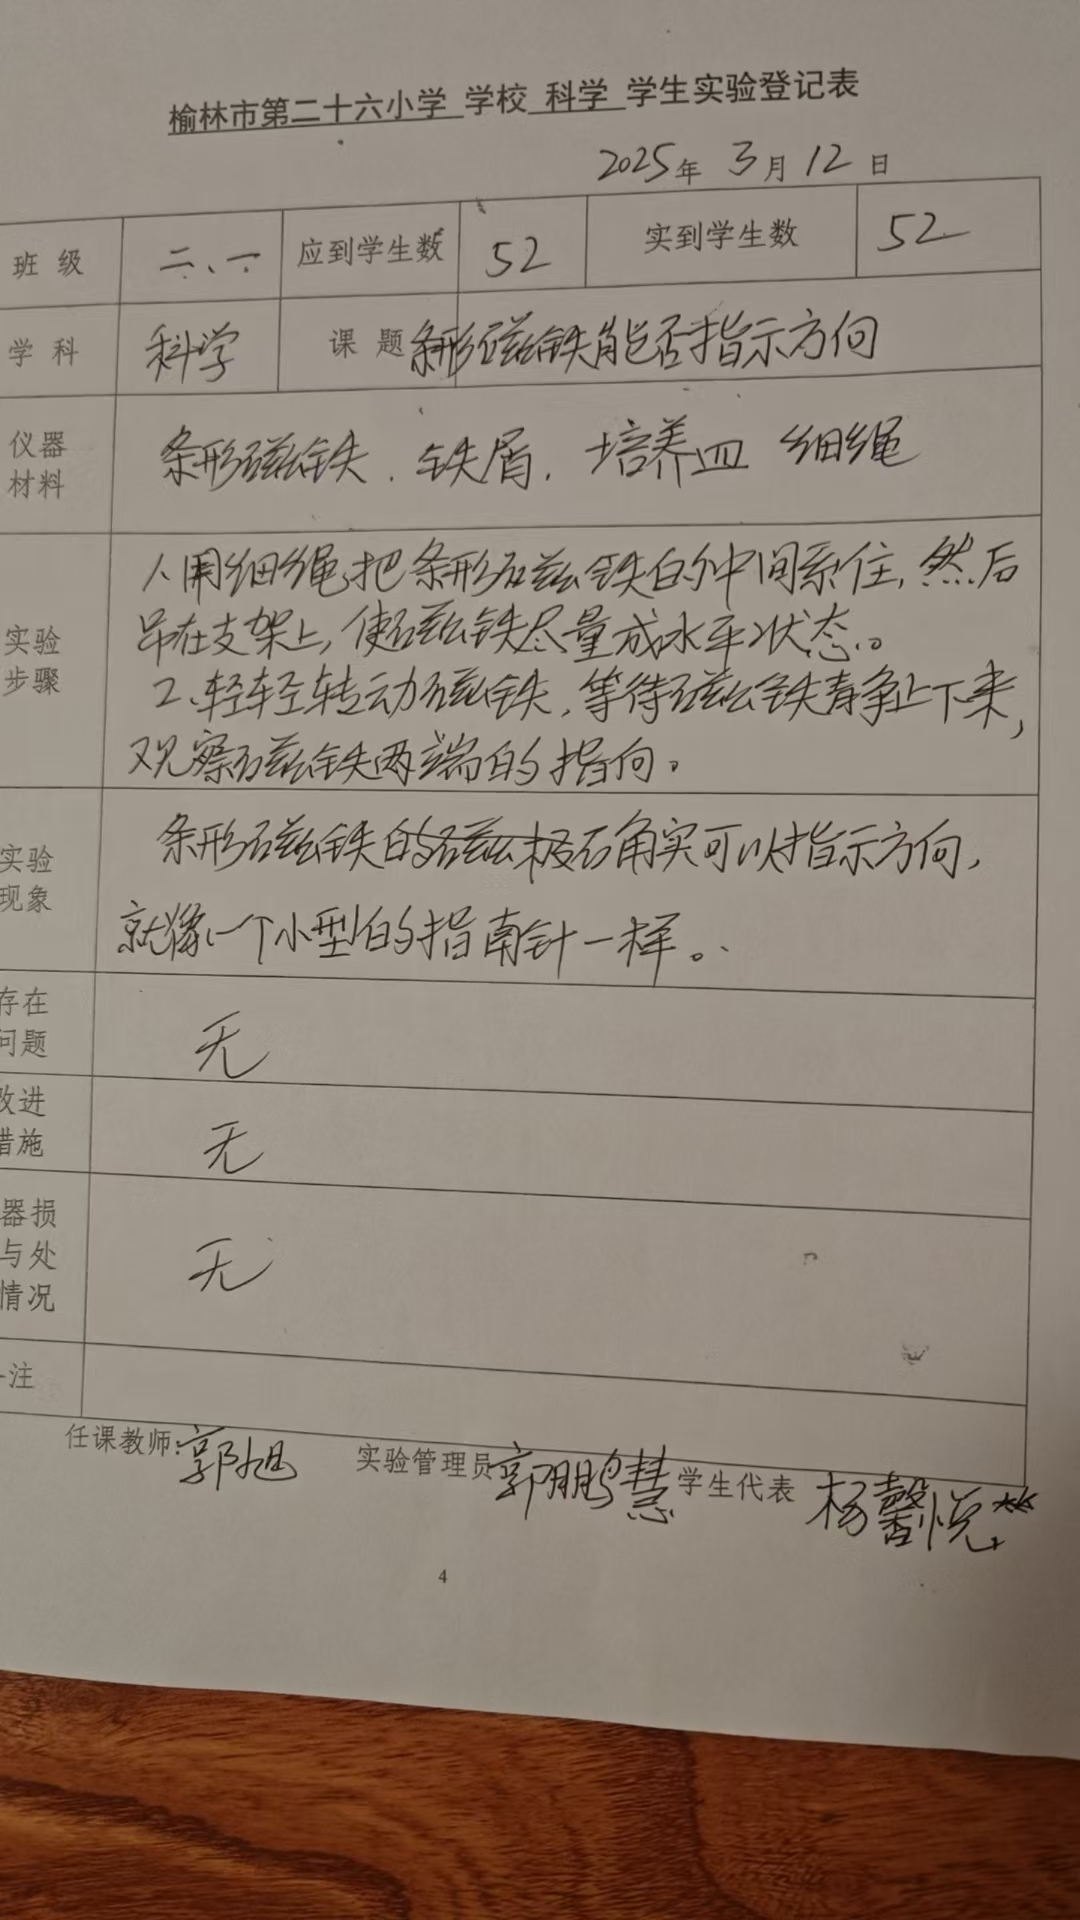 榆林市第二十六小学 学校 科学 学生实验登记表
2025年 3月 12日
班 级 二、一 应到学生数 52 实到学生数 52
学 科 科学 课 题 条形磁铁能否指示方向
仪器
材料
条形磁铁. 铁屑. 培养皿 细绳
实验
步骤
1、用细绳把条形磁铁的中间系住,然后
吊在支架上,使磁铁尽量成水平状态。
2、轻轻转动磁铁,等待磁铁静止下来,
观察磁铁两端的指向。
实验
现象
条形磁铁的磁极确实可以指示方向,
就像一个小型的指南针一样。
存在
问题
无
改进
措施
无
器损
与处
情况
无
注
任课教师:郭旭 实验管理员 郭鹏慧 学生代表 杨馨悦
4